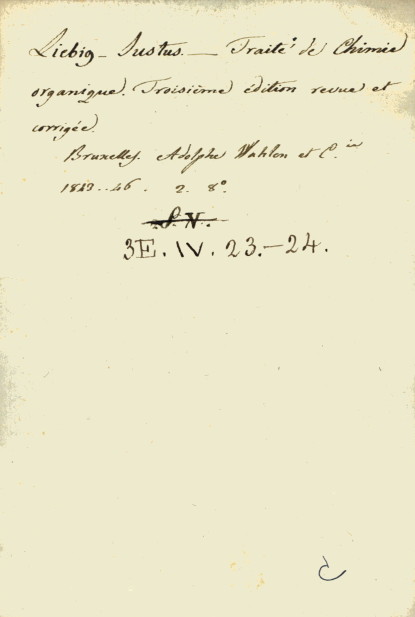 Liebig - Justus. — Traité de Chimie
organique. Troisième édition revue et
corrigée.
Bruxelles. Adolphe Wahlen et C.ie
1843.-46. 2. 8°.
S. N.
3E. IV. 23.-24.
C